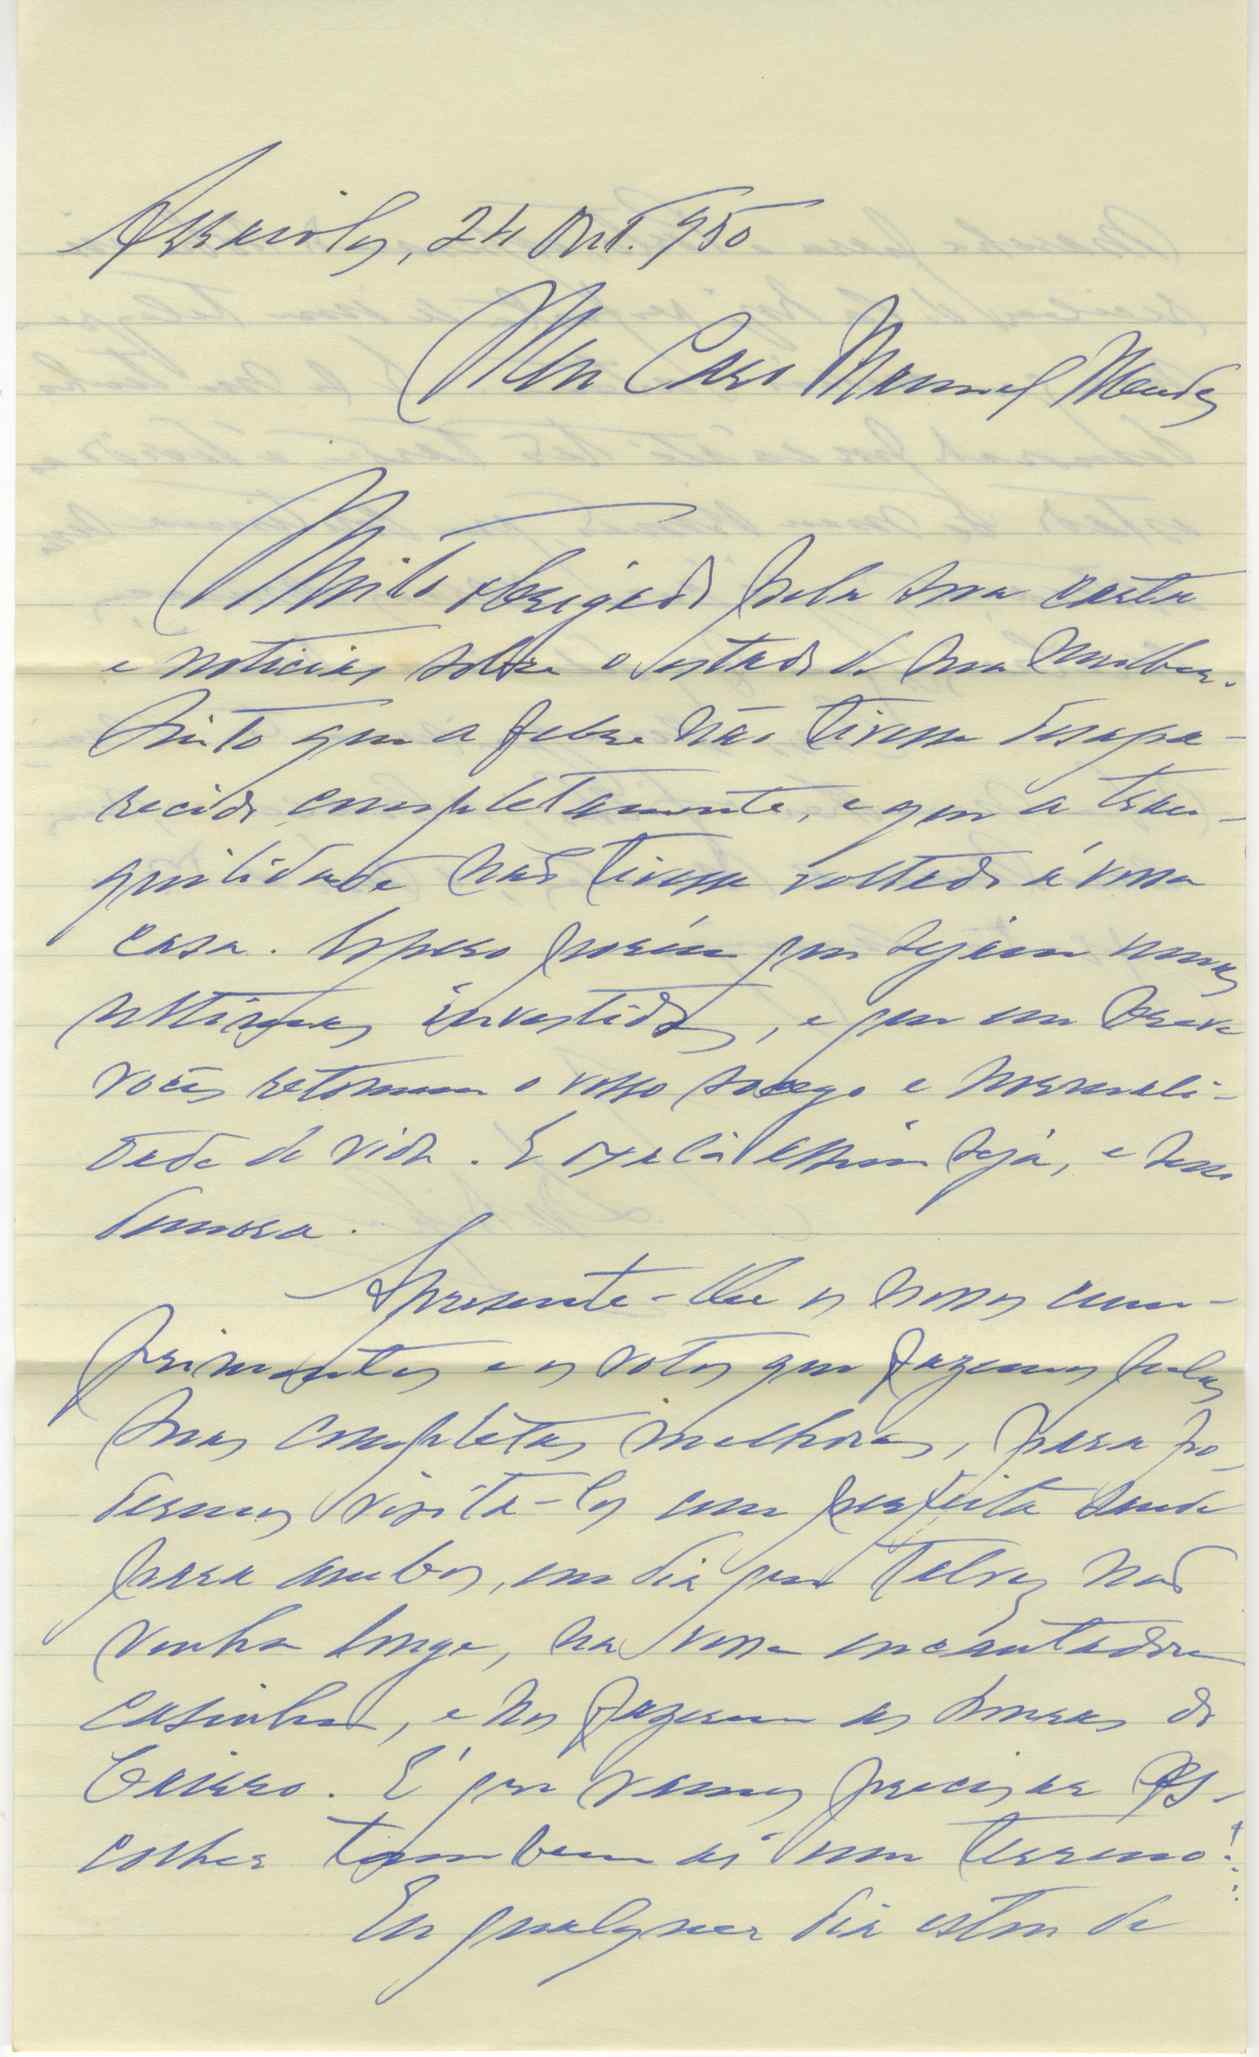 Arraiolos, 24 Out. 950
Meu Caro Manuel Mendes
Muito obrigado pela sua carta
e noticias sobre o estado de sua mulher.
Sinto que a febre não tivesse desapa-
recido completamente, e que a tran-
quilidade não tivesse voltado á vossa
casa. Espero porém que sejam umas
ultimas investidas, e que em breve
vocês retomem o vosso socego e normali-
dade de vida. E oxalá assim seja, e sem
demora.
Apresente-lhe os nossos cum-
primentos e os votos que fazemos pelas
suas completas melhoras, para po-
dermos visita-los com perfeita saude
para ambos, em dia que talvez não
venha longe, na vossa encantadora
casinha, e nos fazerem as honras do
Bairro. É que vamos precisar es-
colher tambem aí um terreno!...
Eu qualquer dia estou de